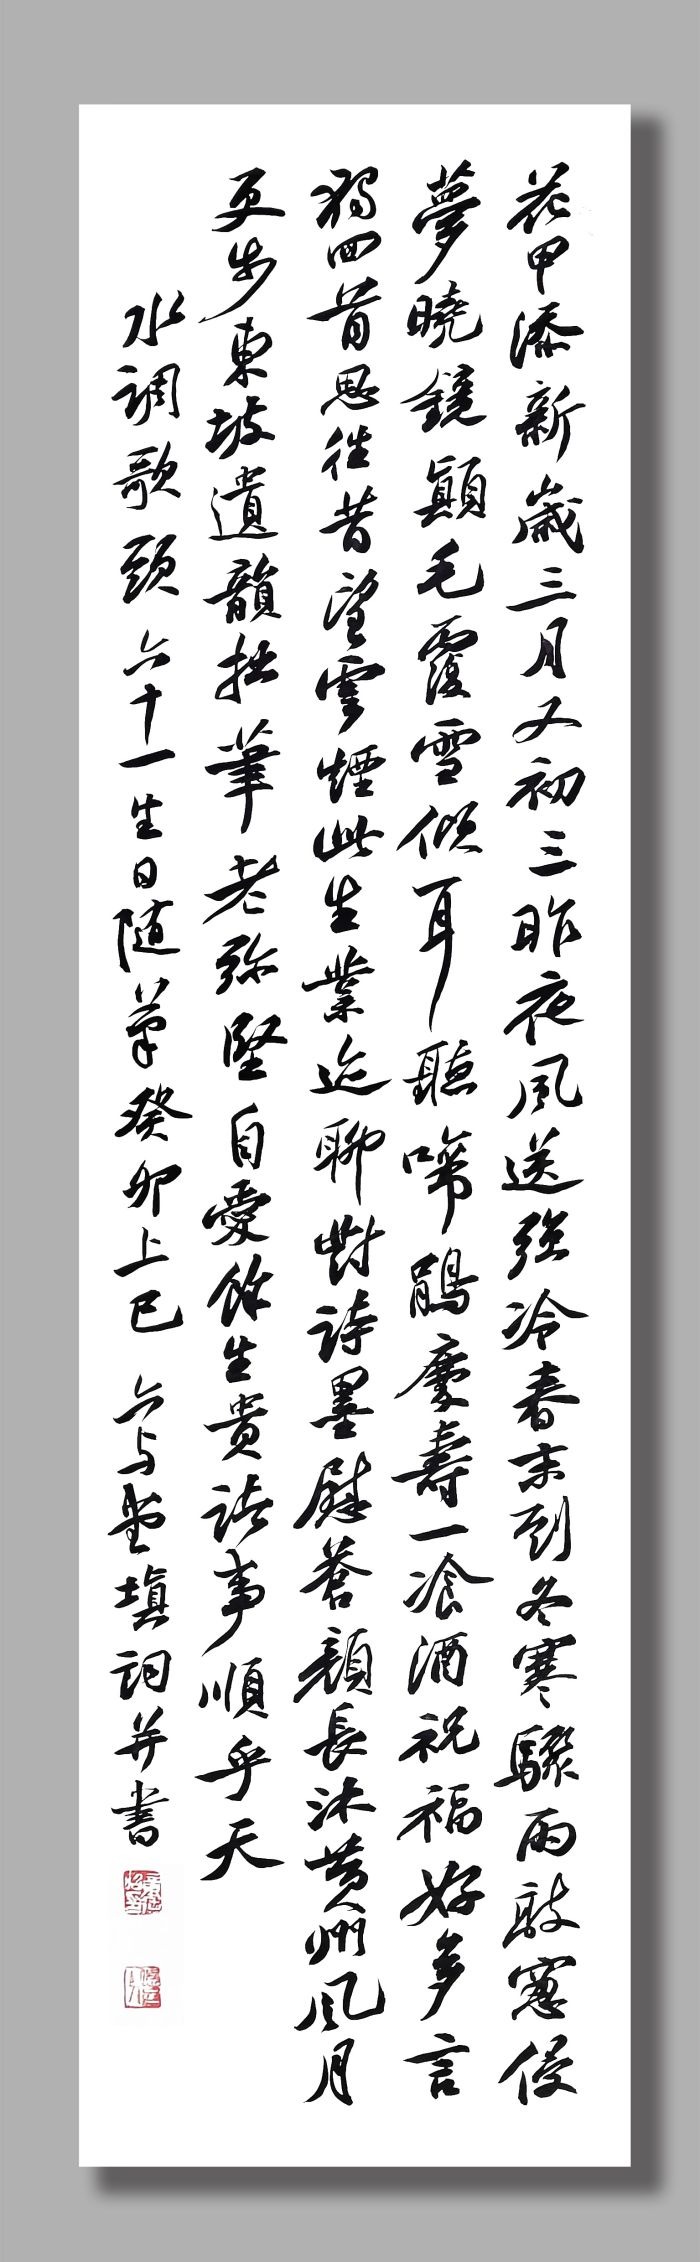 花甲添新歲三月又初三昨夜風送強冷春末到冬寒驟雨敲窗侵
夢曉鏡顛毛覆雪傾耳聽啼鵑慶壽一飡酒祝福好多言
獨回首思往昔望雲煙此生業迹聊對詩墨慰蒼顏長沐黃州風月
更步東坡遺韻拙筆老弥堅自愛餘生貴諸事順乎天
水調歌頭 六十一生日随筆癸卯上巳 六与堂填詞并書